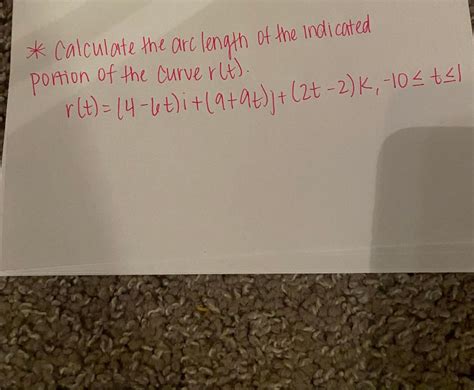 * Calculate the arc length of the indicated
portion of the curve r(t).
r(t) = (4-6t)i+(9+9t)j+(2t-2)k, -10≤t≤1